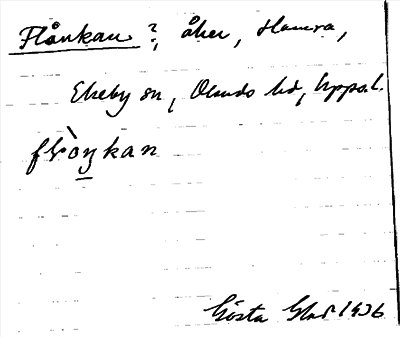 Flånkan?, åker, Hamra,
Ekeby sn, Olands hd, Uppsal.
flòŋkan
Gösta 1936